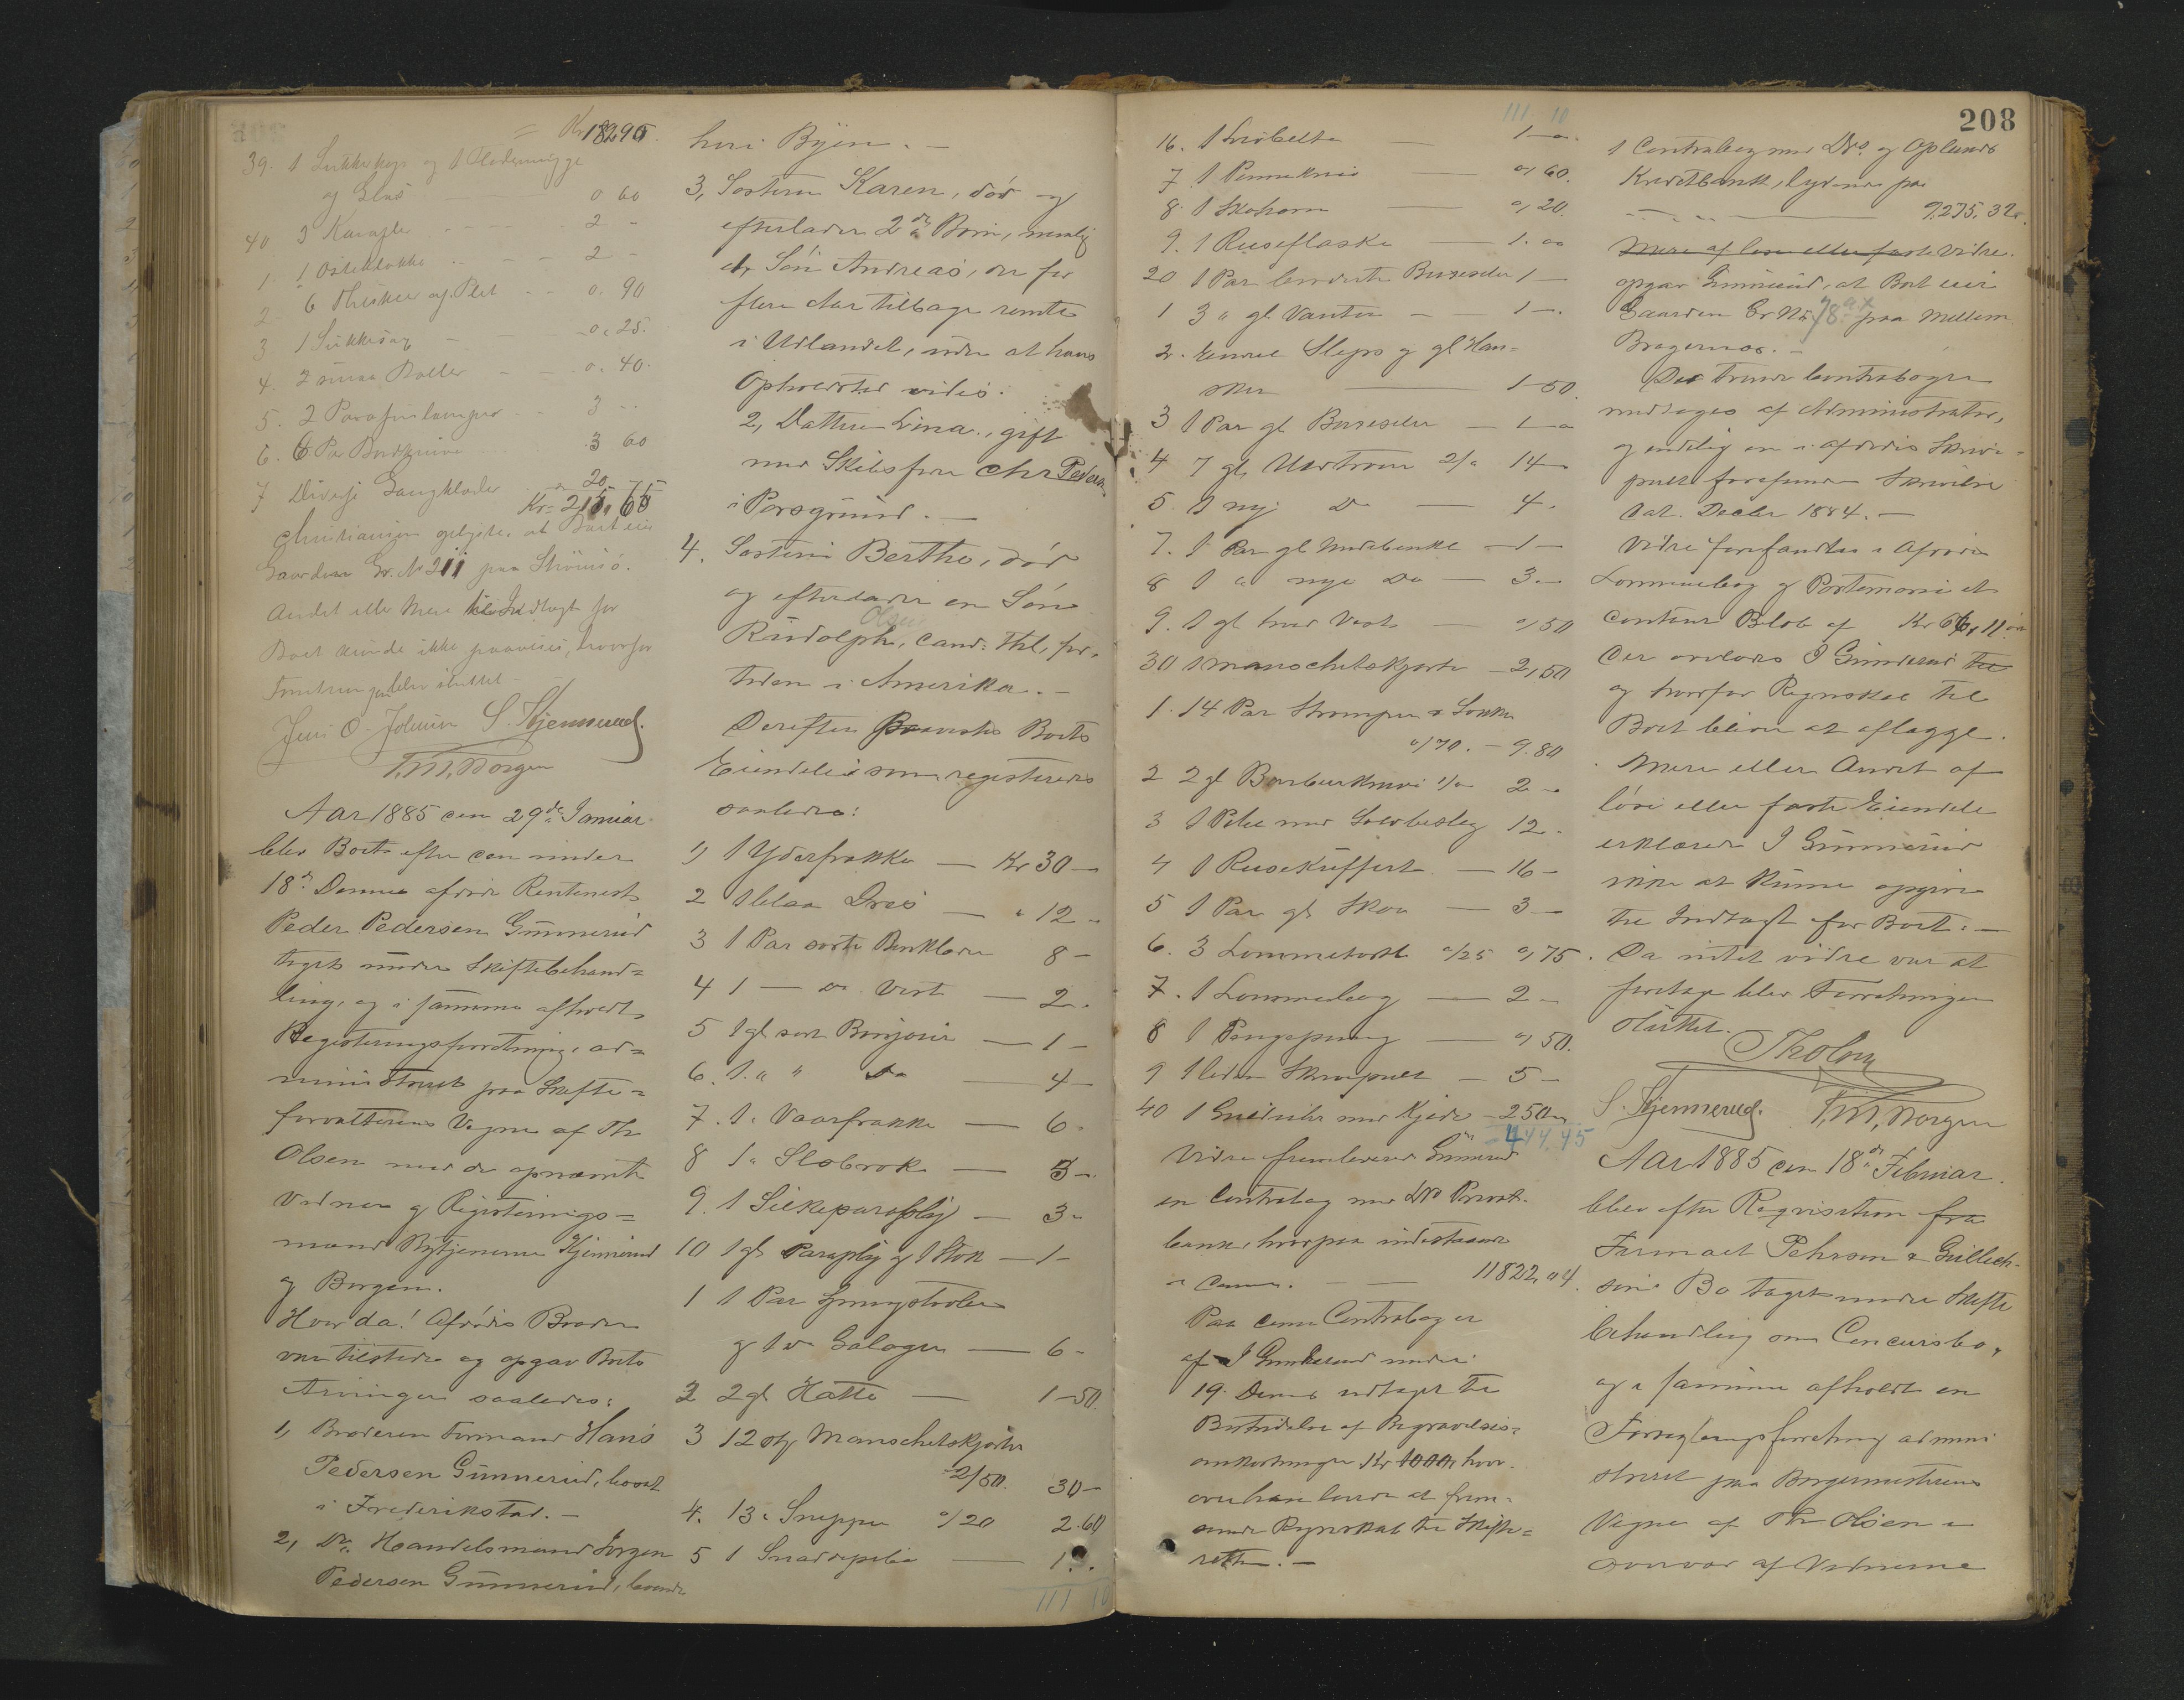 = Kr 182,95.
39. 1 Sukkerkop og 1 Flødemugge
og Glas 0 60
40 3 Karafler 2 -
1. 1 Osteklokke 2 -
2 6 Thesker af Plet 0. 90
3 1 Sukkersax 0. 25.
4. 2 smaa Boller 0. 40.
5. 2 Parafinlamper 3 -
6. 6 Par Bordknive 3 60
7 Diverse Gangklæder 20,
Kr= 215,65
Christiansen oplyste, at Boet eier
Gaarden Gr. No 211 paa Strömsö.
Andet eller Mere til Indtægt for
Boet kunde ikke paavises, hvorfor
Forretningen blev sluttet -
Jens O. Johnsen S. Kjennerud.
T. M. Borgen
Aar 1885 den 29de Januar
blev Boet efter den under
18de Dennes afdøde Rentenist
Peder Pedersen Gunnerud
taget under Skiftebehand=
ling, og i samme afholdt
Registeringsforretning, ad=
ministreret paa Skifte=
forvalterens Vegne af Th.
Olsen med de opnævnte
Vidner og Registerings=
mænd Bytjenerne Kjennerud
og Borgen.
Hvor da! Afdødes Broder
var tilstede og opgav Boets
Arvinger saaledes:
1, Broderen Formand Hans
Pedersen Gunnerud, bosat
i Frederikstad. -
2, Do. Handelsmand Jørgen
Pedersen Gunnerud, boende
her i Byen. -
3, Søsteren Karen, død og
efterlader 2de Børn, nemlig
1, Søn Andreas, der for
flere Aar tilbage reiste
i Udlandet, uden at hans
Opholdsted vides.
2, Datteren Lina, gift
med Skibsfører Chr Pedersen
i Porsgrund. -
4. Søsteren Berthe, død
og efterlader en Søn
Olsen
Rudolph, cand. thl, for
tiden i Amerika. -
Derefter foreviste Boets
Eiendele som registeredes
saaledes:
1) 1 Yderfrakke - Kr 30 -
2 1 blaa Dres - " 12 -
3 1 Par sorte Benklæder 8 -
4 1 - do Vest - 2.
5 1 gl sort Bonjour - 1 -
6. 1 " " Do 4 -
7. 1 " Vaarfrakke - 6 -
8 1 " Slobrok - 3 -
9. 1 Silkeparaply - 3 -
10 1 gl Paraply og 1 Stok - 1 -
1 1 Par Spungstøvler
og 1 do Galoger - 6 -
2 2 gl Hatte - 1 - 50.
3 12 stk Manschetskjorter
2/50. 30 -
4. 13 " Snipper o/20 2.60
5 1 Snadepibe - 1.
111 10
111 10
208
16. 1 Livbelte - 1 - "
7 1 Pennekniv - o, 60.
8. 1 Skohorn - o, 20.
9. 1 Reiseflaske - 1. oo
20 1 Par broderte Buxeseler 1 -
1 3 " gl. Vanter - 1 -.
2. Slips og gl Han=
sker - 1 - 50.
3 1 Par gl Buxeseler - 1 - o
4 7 gl Uldtrøier 2/o 14 -
5. 1 ny Do - 4 -
7. 1 Par gl Underbenkl - 1 -
8 1 " nye Do - 3 -
9. 1 gl hvid Vest - o, 50
30 1 Manschetskjorte - 2,50
1. 14 Par Strømper & Sokker
o, 70. - 9.80
2 2 gl Barberknive 1/o 2 -
3 1 Pibe med Sølvbeslag 12 -
4 1 Reisekuffert - 16 -
5 1 Par gl Skoe - 3 -
6. 3 Lommetørkl o/25 o, 75.
7. 1 Lommebog - 2 -
8 1 Pengepung - o, 50.
9 1 liden Skrivpult - 5 -
40 1 Gulduhr med Kjede - 250 -
444,45
Videre fremleverede Gunnerud
en Contrabog med Drs Privat-
bank, hvorpaa indestaaende
i - - 11822, 04.
Paa denne Contrabog er
af J Gunnerud under
19. Dennes udtaget til
Bestridelse af Begravelses=
omkostninger Kr 1000, hvor-
over han lovede at frem-
sende Regnskab til Skifte=
retten. -
1 Contrabog med Drs og Oplands
Kreditbank, lydende paa
- " - " - 9.275, 32.
Mere af løse eller faste Videre
opgav Gunnerud, at Boet eier
Gaarden Gr No 78 ax paa Mellem
Bragernæs. -
De tvende Contrabøger
modtoges af Administrator,
og endelig en i afdødes Skrive-
pult forefunden Skrivelse
dat. Decbr 1884. -
Videre forefandtes i Afdødes
Lommebog og Portemonæ et
contant Beløb af Kr 66, 11 øre
der overlodes J Gunnerud til
og hvorfor Regnskab til
Boet bliver at aflægge.
Mere eller Andet af
løse eller faste Eiendele
erklærede J Gunnerud
ikke at kunne opgive
til Indtægt for Boet. -
Da intet videre var at
foretage blev Forretningen
sluttet.
Th Olsen
S. Kjennerud. T. M. Borgen
Aar 1885 den 18de Februar
blev efter Reqvisition fra
Firmaet Pehrson & Gullich-
sens Bo taget under Skifte
behandling som Concursbo,
og i samme afholdt en
Forseglingsforretning admini
streret paa Borgermesterens
Vegne af Th Olsen i
Overvær af Vidnerne